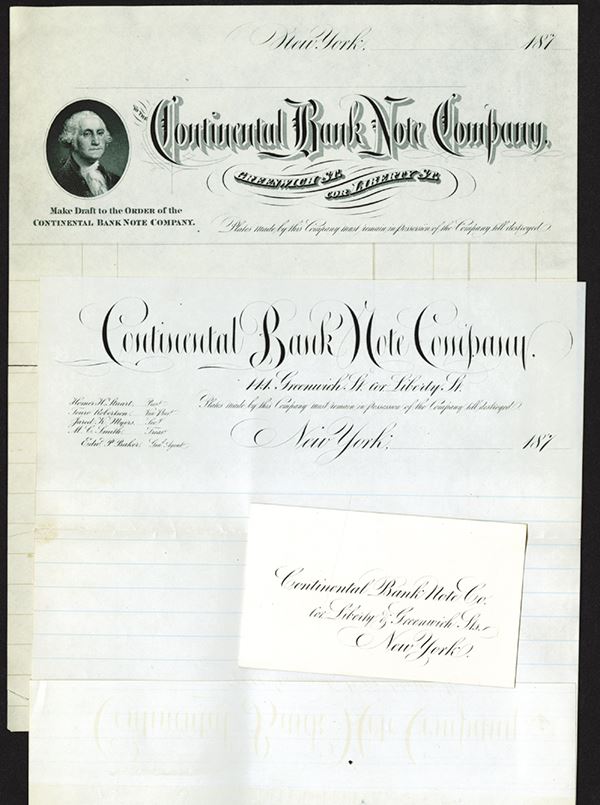 New York, 187
To The
Continental Bank Note Company.
Greenwich St.
cor Liberty St.
Make Draft to the ORDER of the
CONTINENTAL BANK NOTE COMPANY.
Plates made by this Company must remain in possession of the Company till destroyed.
Continental Bank Note Company.
141. Greenwich St. cor Liberty St.
Homer H. Stuart. Prest
Touro Robertson. Vice Prest
Jared K. Myers. Secy
M. C. Smith. Treas
Edwd P. Baker. Genl Agent
Plates made by this Company must remain in possession of the Company till destroyed
New York. 187
Continental Bank Note Co.
cor Liberty & Greenwich Sts.
New York.
Continental Bank Note Company